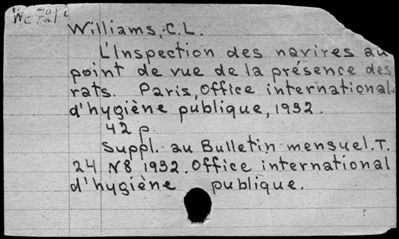 Williams, C.L.
L'Inspection des navires au
point de vue de la présence des
rats. Paris, Office international
d'hygiène publique, 1932.
42 p.
Suppl. au Bulletin mensuel. T.
24 N8 1932. Office international
d'hygiène publique.